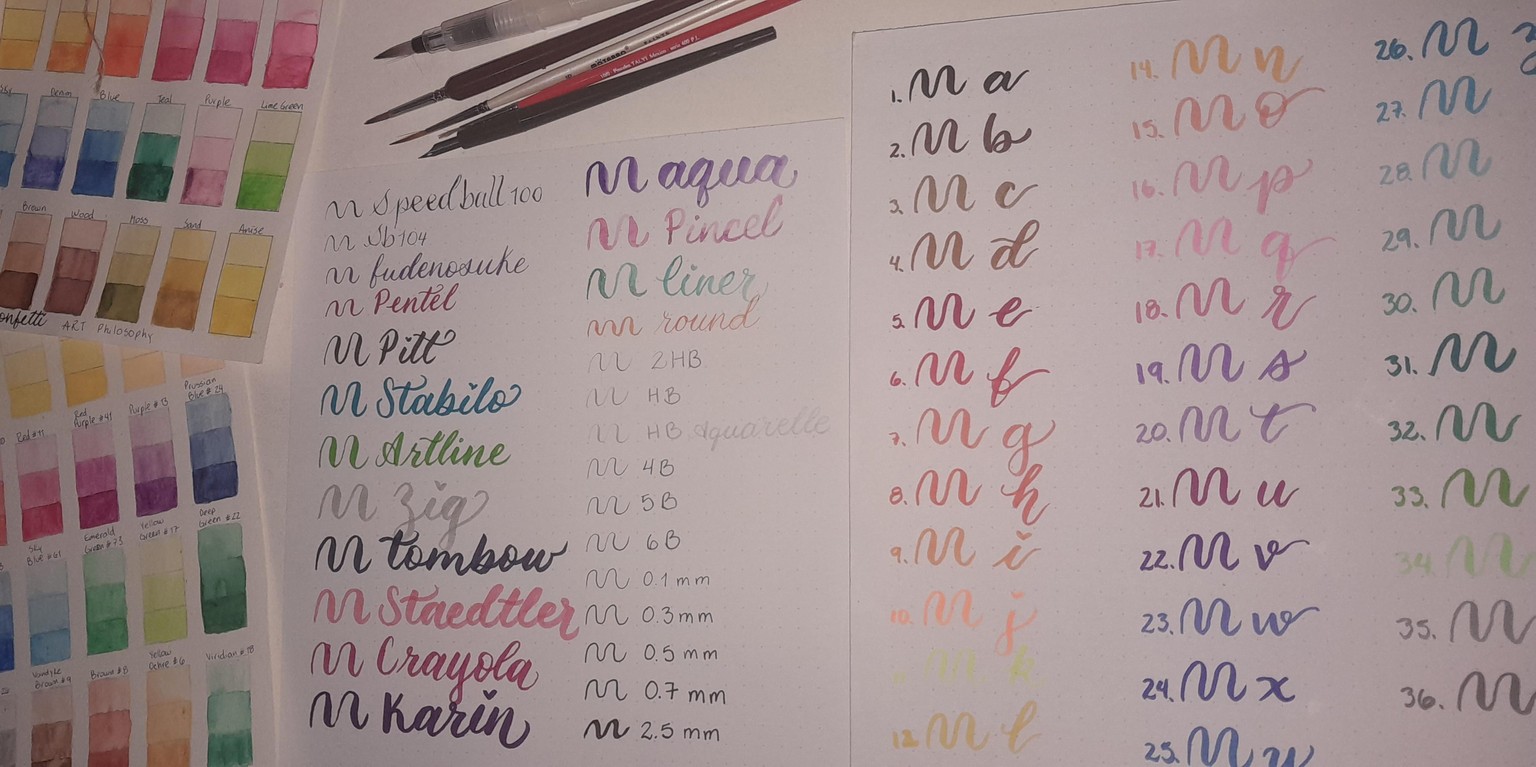 Denim
Blue
Teal
Purple
Lime Green
Brown
Wood
Moss
Sand
Anise
ART Philosophy
Prussian
Blue # 24
Purple # 13
Red
Purple # 41
Red # 11
Deep
Green # 22
Yellow
Green # 17
Emerald
Green # 73
Sky
Blue # 61
Viridian # 78
Yellow
Ochre # 6
Brown # 8
Vandyke
Brown # 9
Speedball 100
Sb 104
fudenosuke
Pentel
Pitt
Stabilo
Artline
Zig
tombow
Staedtler
Crayola
Karin
aqua
Pincel
liner
round
2HB
HB
HB Aquarelle
4B
5B
6B
0.1 mm
0.3 mm
0.5 mm
0.7 mm
2.5 mm
1. a
2. b
3. c
4. d
5. e
6. f
7. g
8. h
9. i
10. j
k
12. l
14. n
15. o
16. p
17. q
18. r
19. s
20. t
21. u
22. v
23. w
24. x
25.
26. z
27.
28.
29.
30.
31.
32.
33.
34.
35.
36.